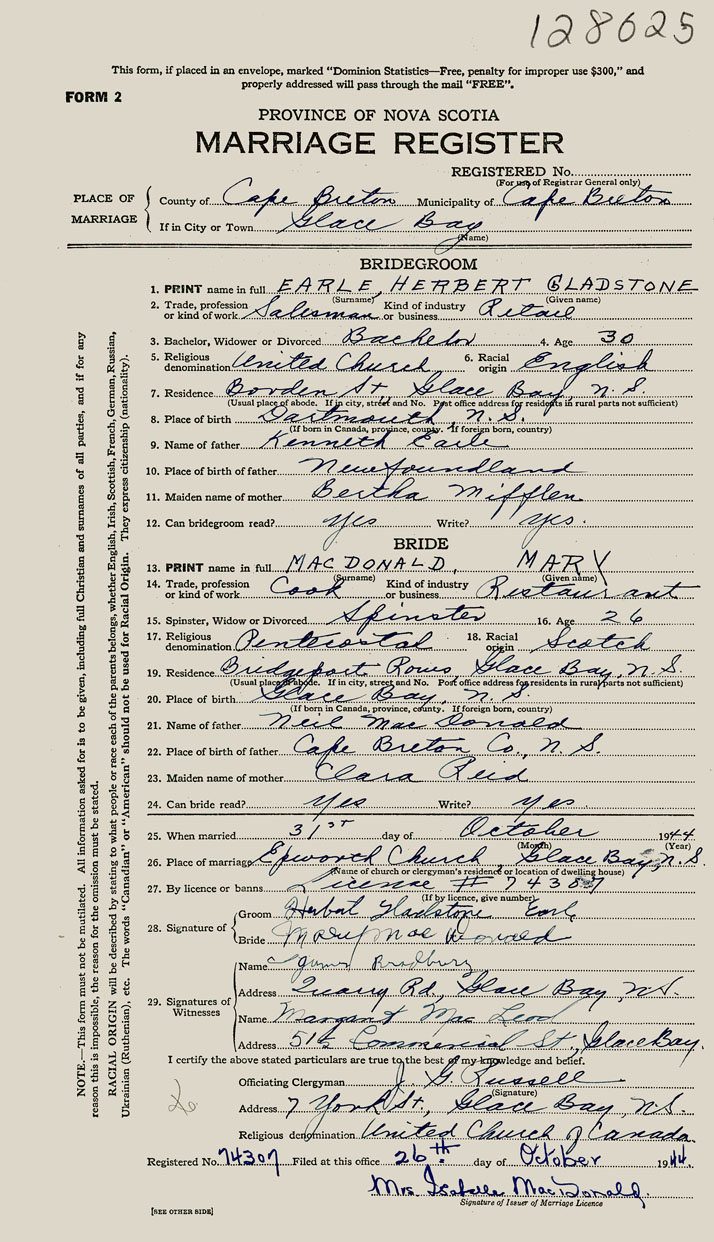 128625
This form, if placed in an envelope, marked “Dominion Statistics—Free, penalty for improper use $300,” and
properly addressed will pass through the mail “FREE”.
FORM 2
PROVINCE OF NOVA SCOTIA
MARRIAGE REGISTER
REGISTERED No.
(For use of Registrar General only)
PLACE OF MARRIAGE
County of Cape Breton Municipality of Cape Breton
If in City or Town Glace Bay
(Name)
BRIDEGROOM
1. PRINT name in full EARLE, HERBERT GLADSTONE
(Surname) (Given name)
2. Trade, profession or kind of work Salesman Kind of industry or business Retail
3. Bachelor, Widower or Divorced Bachelor 4. Age 30
5. Religious denomination United Church 6. Racial origin English
7. Residence Borden St, Glace Bay, N.S.
(Usual place of abode. If in city, street and No. Post office address for residents in rural parts not sufficient)
8. Place of birth Dartmouth N.S.
(If born in Canada, province, county. If foreign born, country)
9. Name of father Kenneth Earle
10. Place of birth of father Newfoundland
11. Maiden name of mother Bertha Mifflen
12. Can bridegroom read? yes Write? yes.
BRIDE
13. PRINT name in full MACDONALD, MARY
(Surname) (Given name)
14. Trade, profession or kind of work Cook Kind of industry or business Restaurant
15. Spinster, Widow or Divorced Spinster 16. Age 26
17. Religious denomination Pentecostal 18. Racial origin Scotch
19. Residence Bridgeport Rows, Glace Bay, N.S.
(Usual place of abode. If in city, street and No. Post office address for residents in rural parts not sufficient)
20. Place of birth Glace Bay, N.S.
(If born in Canada, province, county. If foreign born, country)
21. Name of father Neil MacDonald
22. Place of birth of father Cape Breton Co., N.S.
23. Maiden name of mother Clara Reid
24. Can bride read? yes Write? yes.
25. When married 31st day of October 1944
(Month) (Year)
26. Place of marriage Epworth Church, Glace Bay, N.S.
(Name of church or clergyman's residence or location of dwelling house)
27. By licence or banns License # 74307
(If by licence, give number)
28. Signature of
Groom Herbert Gladstone Earle
Bride Mary MacDonald
29. Signatures of Witnesses
Name James Bradbury
Address Quarry Rd., Glace Bay, N.S.
Name Margaret MacLeod
Address 515 Commercial St., Glace Bay.
I certify the above stated particulars are true to the best of my knowledge and belief.
Officiating Clergyman J. G. Russell
(Signature)
Address 7 York St., Glace Bay, N.S.
Religious denomination United Church of Canada.
Registered No. 74307 Filed at this office 26th day of October 1944.
Mrs. Isabelle MacDonald.
Signature of Issuer of Marriage Licence
[SEE OTHER SIDE]
NOTE.—This form must not be mutilated. All information asked for is to be given, including full Christian and surnames of all parties, and if for any
reason this is impossible, the reason for the omission must be stated.
RACIAL ORIGIN will be described by stating to what people or race each of the parents belongs, whether English, Irish, Scottish, French, German, Russian,
Ukrainian (Ruthenian), etc. The words “Canadian” or “American” should not be used for Racial Origin. They express citizenship (nationality).